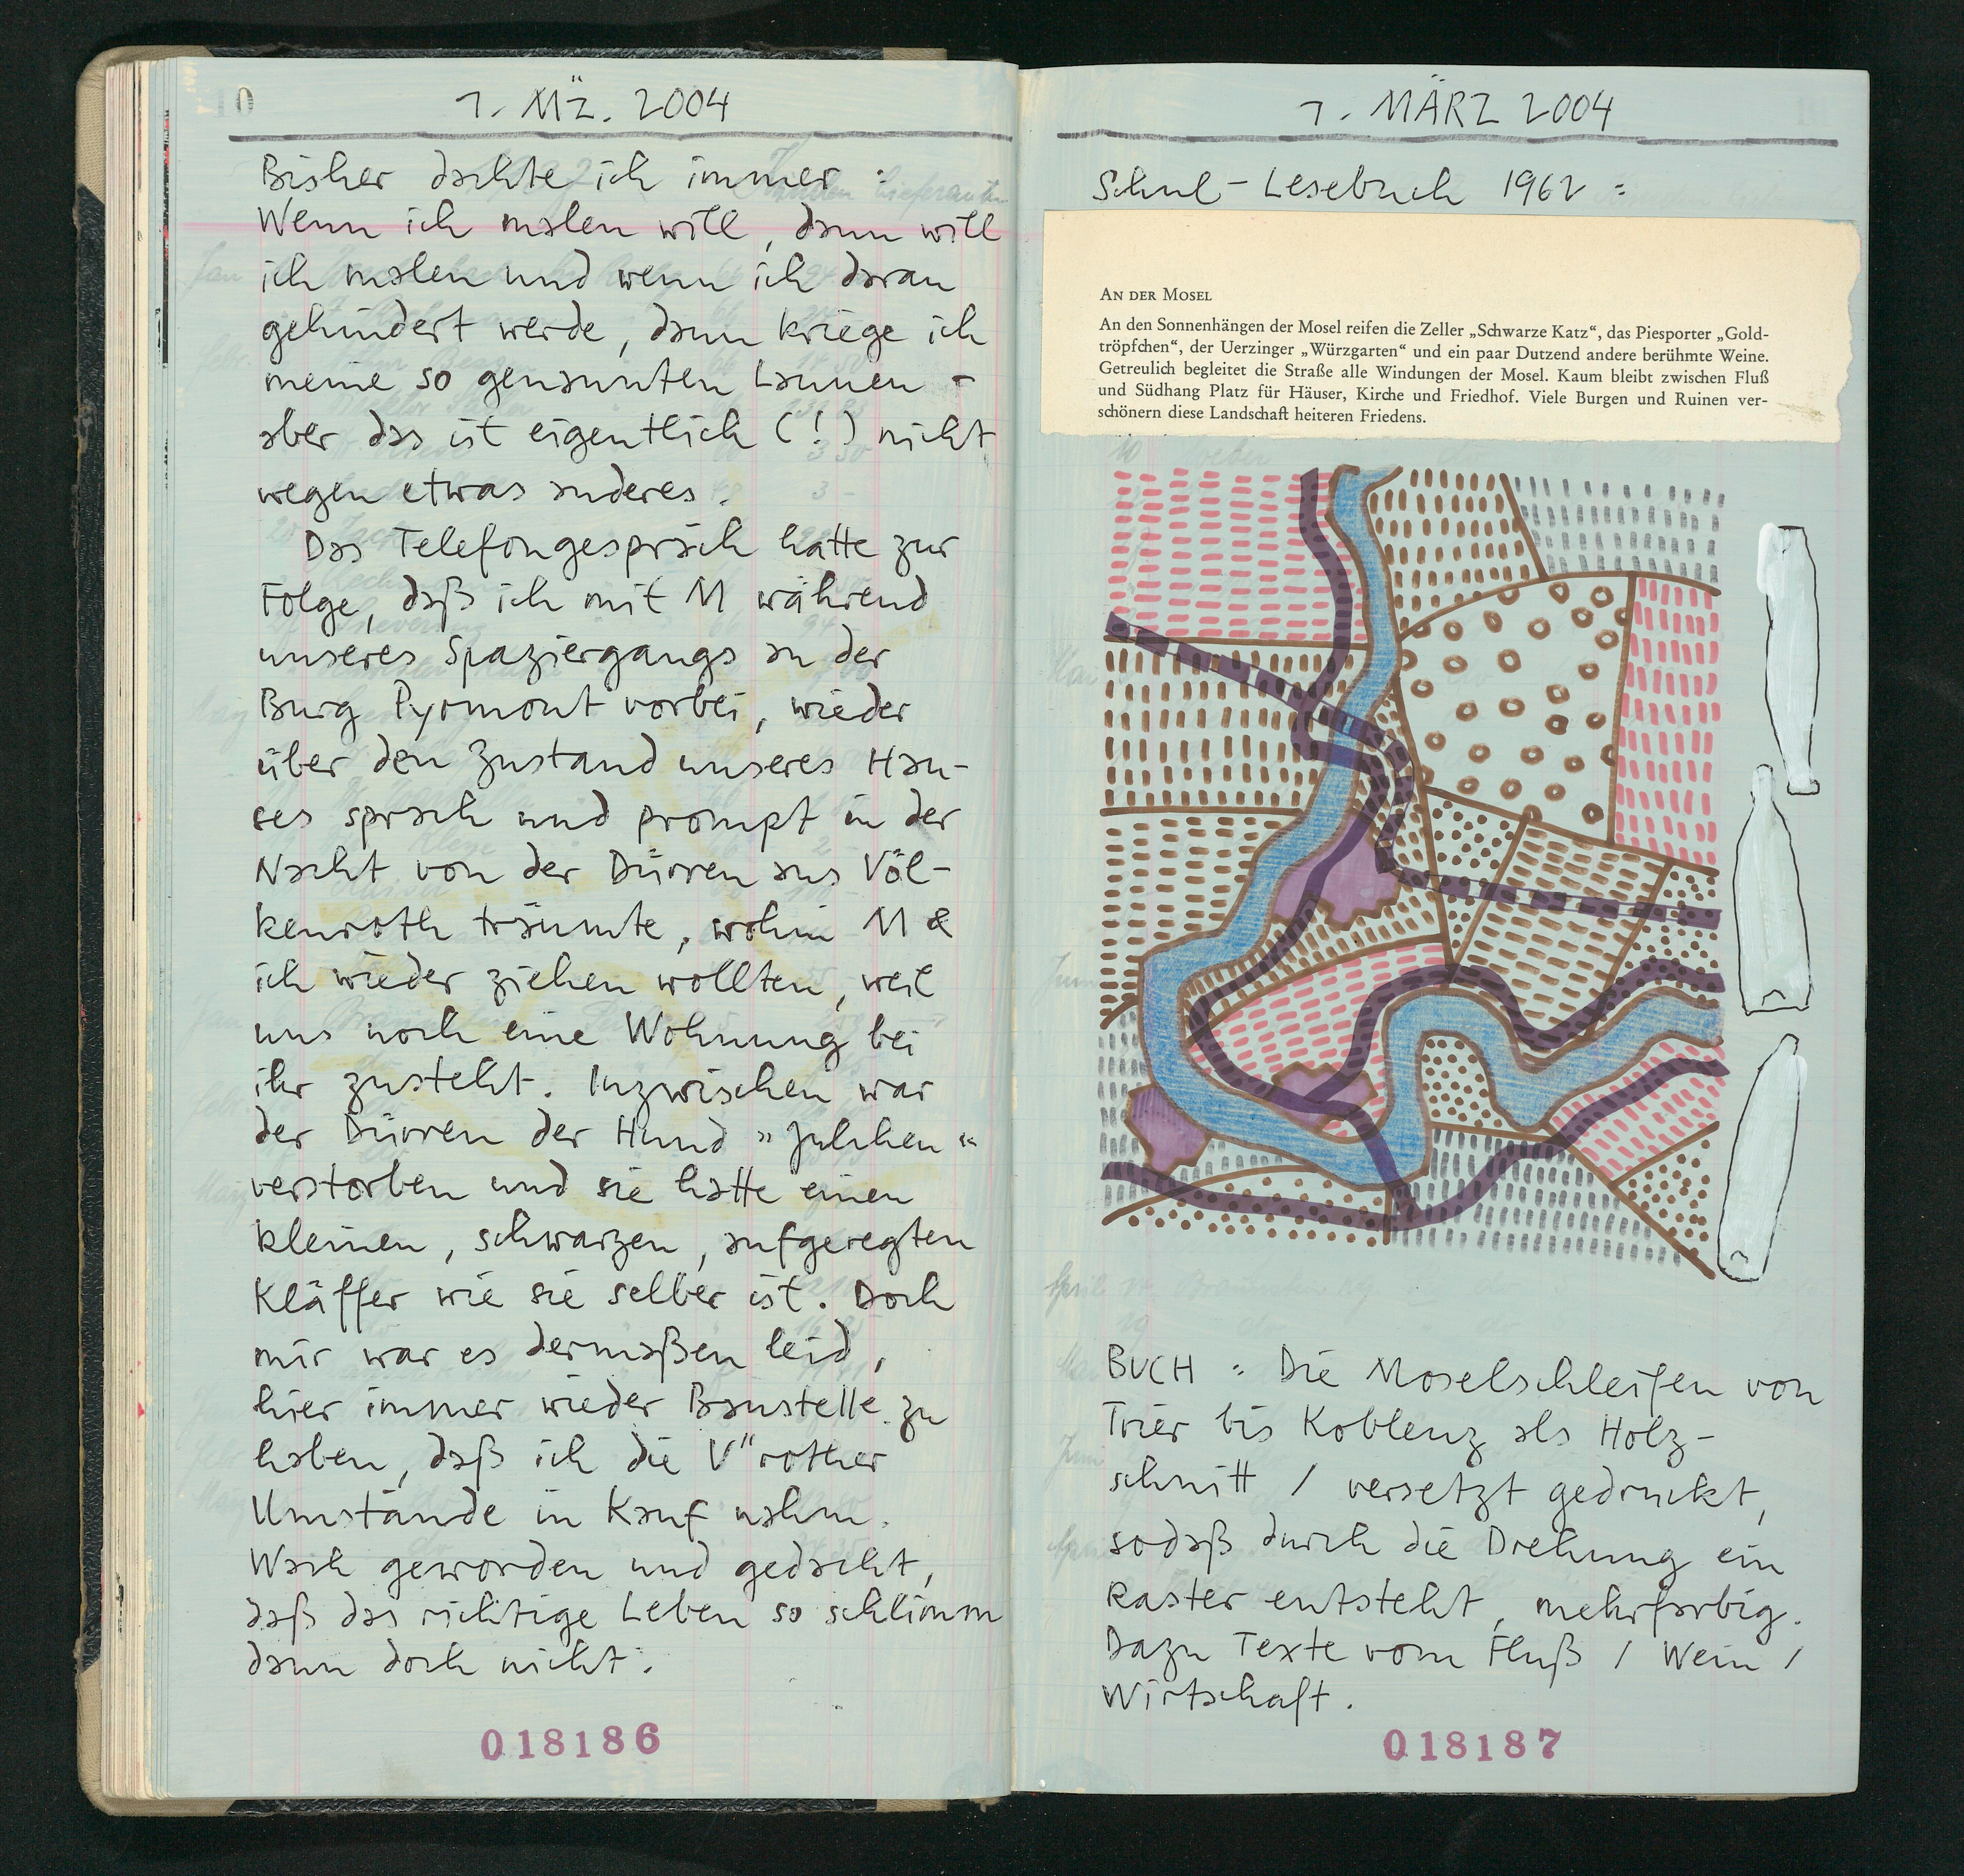 1. MZ. 2004
Bisher dachte ich immer :
Wenn ich malen will, dann will
ich malen und wenn ich daran
gehindert werde, dann kriege ich
meine so genannten Launen -
aber das ist eigentlich (!) nicht
wegen etwas anderes.
Das Telefongespräch hatte zur
Folge, daß ich mit M während
unseres Spaziergangs an der
Burg Pyrmont vorbei, wieder
über den Zustand unseres Hau-
ses sprach und prompt in der
Nacht von der Dürren aus Völ-
kenroth träumte, wohin M &
ich wieder ziehen wollten, weil
uns noch eine Wohnung bei
ihr zusteht. Inzwischen war
der Dürren der Hund „Julchen“
verstorben und sie hatte einen
kleinen, schwarzen, aufgeregten
Kläffer wie sie selber ist. Doch
mir war es dermaßen leid,
hier immer wieder Baustelle zu
haben, daß ich die V"rother
Umstände in Kauf nahm.
Wach geworden und gedacht,
daß das richtige Leben so schlimm
dann doch nicht.
018186
1. MÄRZ 2004
Schul-Lesebuch 1962 :
AN DER MOSEL
An den Sonnenhängen der Mosel reifen die Zeller „Schwarze Katz“, das Piesporter „Gold-
tröpfchen“, der Uerzinger „Würzgarten“ und ein paar Dutzend andere berühmte Weine.
Getreulich begleitet die Straße alle Windungen der Mosel. Kaum bleibt zwischen Fluß
und Südhang Platz für Häuser, Kirche und Friedhof. Viele Burgen und Ruinen ver-
schönern diese Landschaft heiteren Friedens.
BUCH : Die Moselschleifen von
Trier bis Koblenz als Holz-
schnitt / versetzt gedruckt,
sodaß durch die Drehung ein
Raster entsteht, mehrfarbig.
Dazu Texte vom Fluß / Wein /
Wirtschaft.
018187